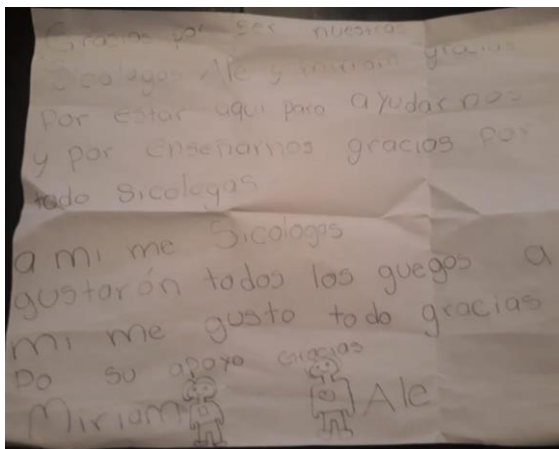 Gracias por ser nuestras
Sicologas Ale y miriam gracias
Por estar aqui para ayudarnos
y por enseñarnos gracias por
todo sicologas
a mi me Sicologas
gustarón todos los guegos a
mi me gusto todo gracias
Po su apoyo Gracias
Miriam Ale